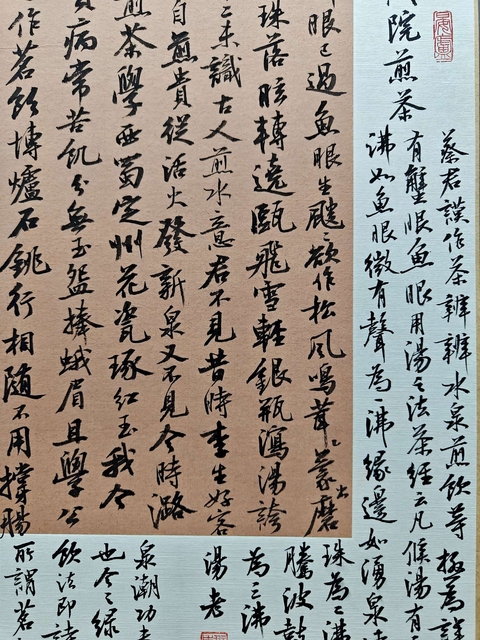 院煎茶
蔡君謨作茶辨辨水泉煎飲等極為
有蟹眼魚眼用湯之法茶經云凡候湯有
沸如魚眼微有聲為一沸緣邊如湧泉
眼已過魚眼生颼〻欲作松風鳴茸〻蒙磨出
珠落眩轉遶甌飛雪輕銀瓶瀉湯誇
二未識古人煎水意君不見昔時李生好客
自煎貴從活火發新泉又不見今時潞
煎茶學西蜀定州花瓷琢紅玉我今
病常苦飢分無玉盌捧蛾眉且學公
作茗飲塼爐石銚行相隨不用撐腸
珠為二沸
騰波鼓
為三沸
湯老
泉潮功
也今之緣
飲法即
所謂茗